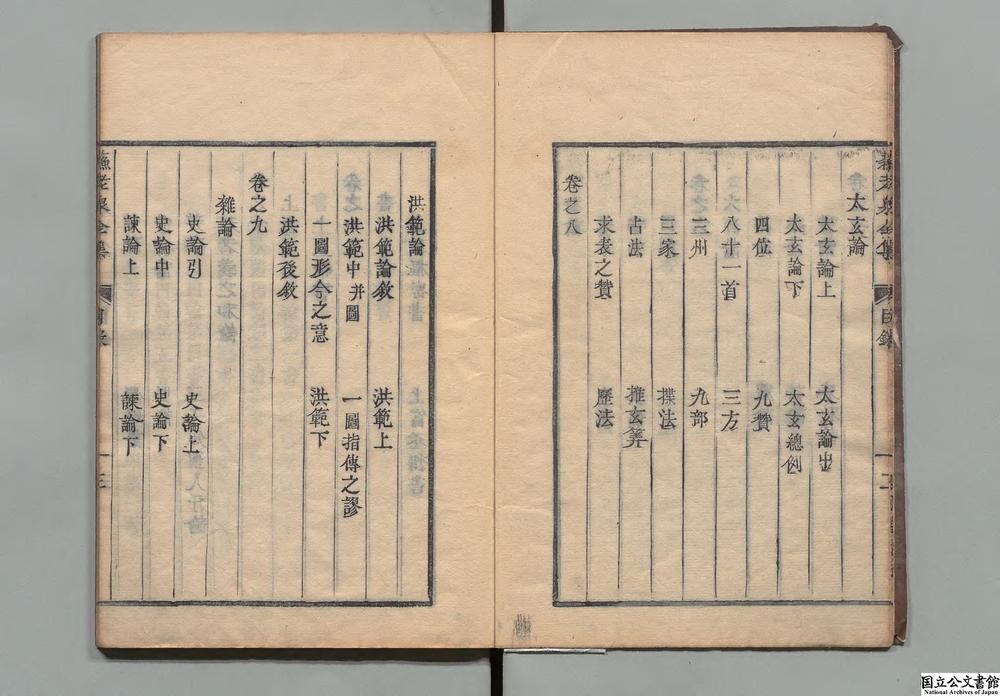 蘇老泉全集 目錄
太玄論
太玄論上 太玄論中
太玄論下 太玄總例
四位 九贊
八十一首 三方
三州 九部
三家 揲法
占法 推玄筭
求表之贊 曆法
卷之八
洪範論
洪範論敘 洪範上
洪範中并圖 一圖指傳之謬
一圖形今之意 洪範下
洪範後敘
卷之九
雜論
史論引 史論上
史論中 史論下
諫論上 諫論下
蘇老泉全集 目錄
国立公文書館
National Archives of Japan